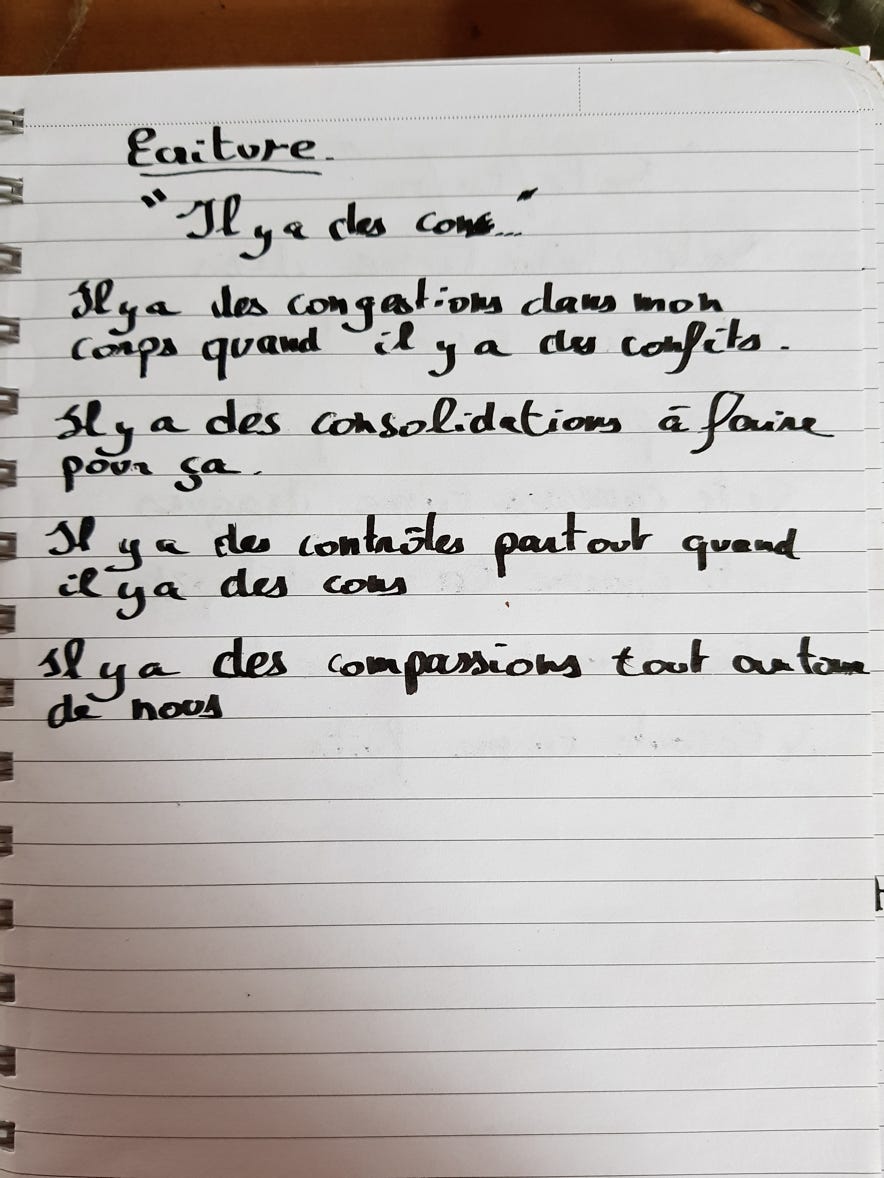 Ecriture.
"Il y a des cons..."
Il y a des congestions dans mon
corps quand il y a des confits.
Il y a des consolidations à faire
pour ça.
Il y a des contrôles partout quand
il y a des cons
Il y a des compassions tout autour
de nous